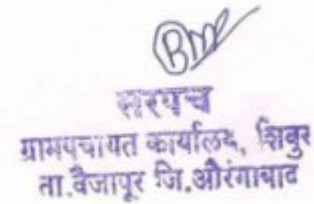 सरपंच
ग्रामपंचायत कार्यालय, शिवुर
ता.वैजापूर जि.औरंगाबाद